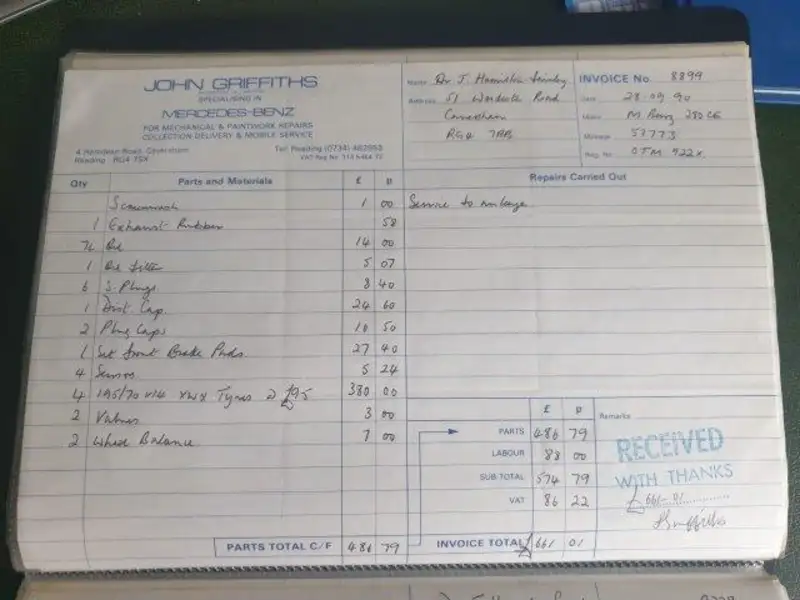 JOHN GRIFFITHS
SPECIALISING IN
MERCEDES-BENZ
FOR MECHANICAL & PAINTWORK REPAIRS
COLLECTION DELIVERY & MOBILE SERVICE
Road, Caversham, Tel: Reading (0734)
Reading RG4 7SX VAT Reg No
Name Dr J. Hamilton
Address 51 Road
Caversham
RG4
INVOICE No 8899
Date 28.09.90
M Benz 280CE
Mileage 53773
Reg. No.
Qty Parts and Materials £ p
Screenwash 1 00
1 Exhaust Rubber 58
7L Oil 14 00
1 Oil filter 5 07
6 S. Plugs 8 40
1 Dist. Cap. 24 60
2 Plug Caps 10 50
1 Set front Brake Pads 27 40
4 Sensors 5 24
4 195/70 x14 XWX Tyres @ £95 380 00
2 Valves 3 00
2 Wheel Balance 7 00
PARTS TOTAL C/F 486 79
Repairs Carried Out
Service to mileage
£ p
PARTS 486 79
LABOUR 88 00
SUB TOTAL 574 79
VAT 86 22
INVOICE TOTAL £ 661 01
Remarks
RECEIVED
WITH THANKS
£661-01
J Griffiths